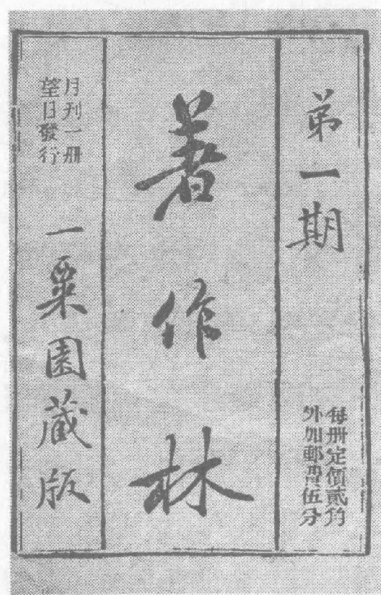 第一期
每册定價貳角
外加郵費伍分
著作林
月刊一册
望日發行
一粟園蔵版